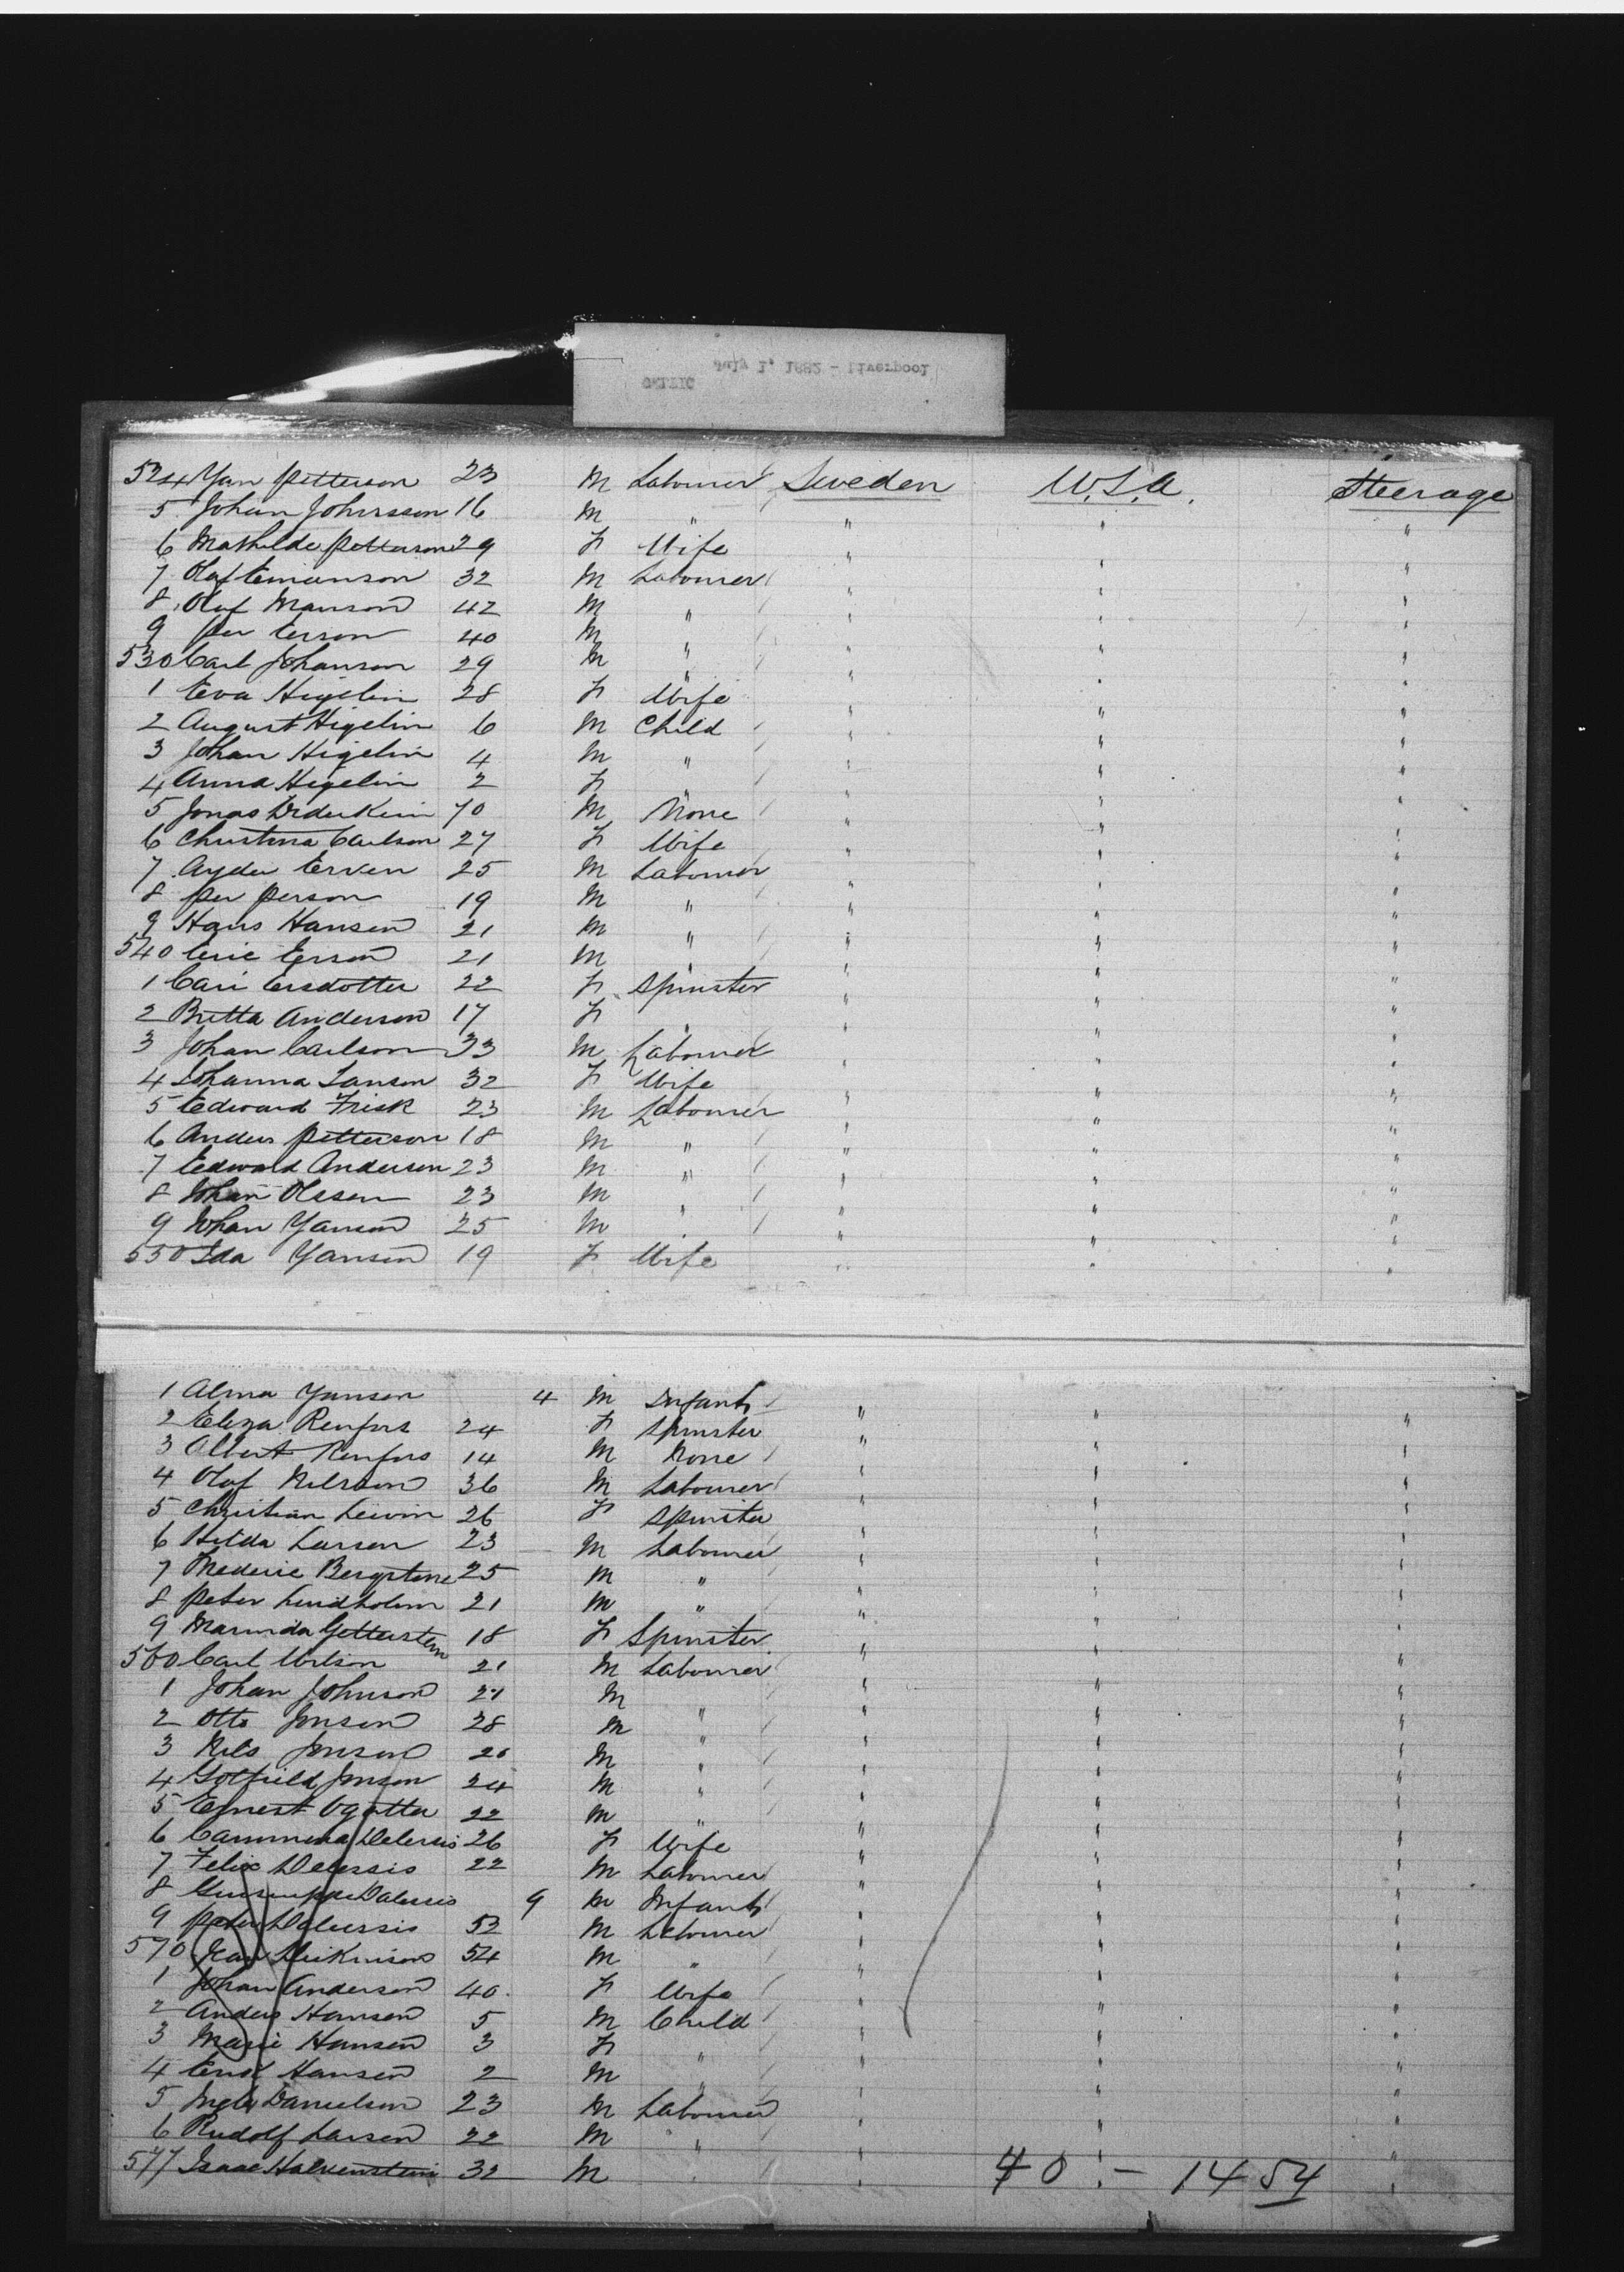 July 1, 1882 - Liverpool
CELTIC
524 Yan Petterson 23 M Labourer Sweden U.S.A. Steerage
5 Johan Johnsson 16 M " " " "
6 Mathilda Petterson 29 F Wife " " "
7 Olaf Emanson 32 M Labourer " " "
8 Olof Manson 42 M " " " "
9 Per Erson 40 M " " " "
530 Carl Johanson 29 M " " " "
1 Eva Higelin 28 F Wife " " "
2 August Higelin 6 M Child " " "
3 Johan Higelin 4 M " " " "
4 Anna Higelin 2 F " " " "
5 Jonas 70 M None " " "
6 Christina Carlson 27 F Wife " " "
7 Erven 25 M Labourer " " "
8 Per Person 19 M " " " "
9 Hans Hansen 21 M " " " "
540 Eric Erson 21 M " " " "
1 Cari Ersdotter 22 F Spinster " " "
2 Britta Anderson 17 F " " " "
3 Johan Carlson 33 M Labourer " " "
4 Johanna Janson 32 F Wife " " "
5 Edward Frisk 23 M Labourer " " "
6 Anders Petterson 18 M " " " "
7 Edward Anderson 23 M " " " "
8 Johan Olsson 23 M " " " "
9 Johan Yanson 25 M " " " "
550 Ida Yanson 19 F Wife " " "
1 Alma Yanson 4 M Infant " " "
2 Eliza Renfors 24 F Spinster " " "
3 Albert Renfors 14 M None " " "
4 Olof Nilsson 36 M Labourer " " "
5 Christian 26 F Spinster " " "
6 Hilda Larson 23 M Labourer " " "
7 25 M " " " "
8 Peter Lindholm 21 M " " " "
9 18 F Spinster " " "
560 Carl Wilson 21 M Labourer " " "
1 Johan Johnson 21 M " " " "
2 Otto Jonson 28 M " " " "
3 Nils Jonson M " " " "
4 Gotfield Jonson 24 M " " " "
5 Ernest 22 M " " " "
6 26 F Wife " " "
7 Felix 22 M Labourer " " "
8 9 M Infant " " "
9 Peter 53 M Labourer " " "
570 54 M " " " "
1 Johan Anderson 40 F Wife " " "
2 Anders Hansen 5 M Child " " "
3 Marie Hansen 3 F " " " "
4 Hansen 2 M " " " "
5 Danielson 23 M Labourer " " "
6 Rudolf Larsen 22 M " " " "
577 Isaac 32 M " " " "
40 - 1454